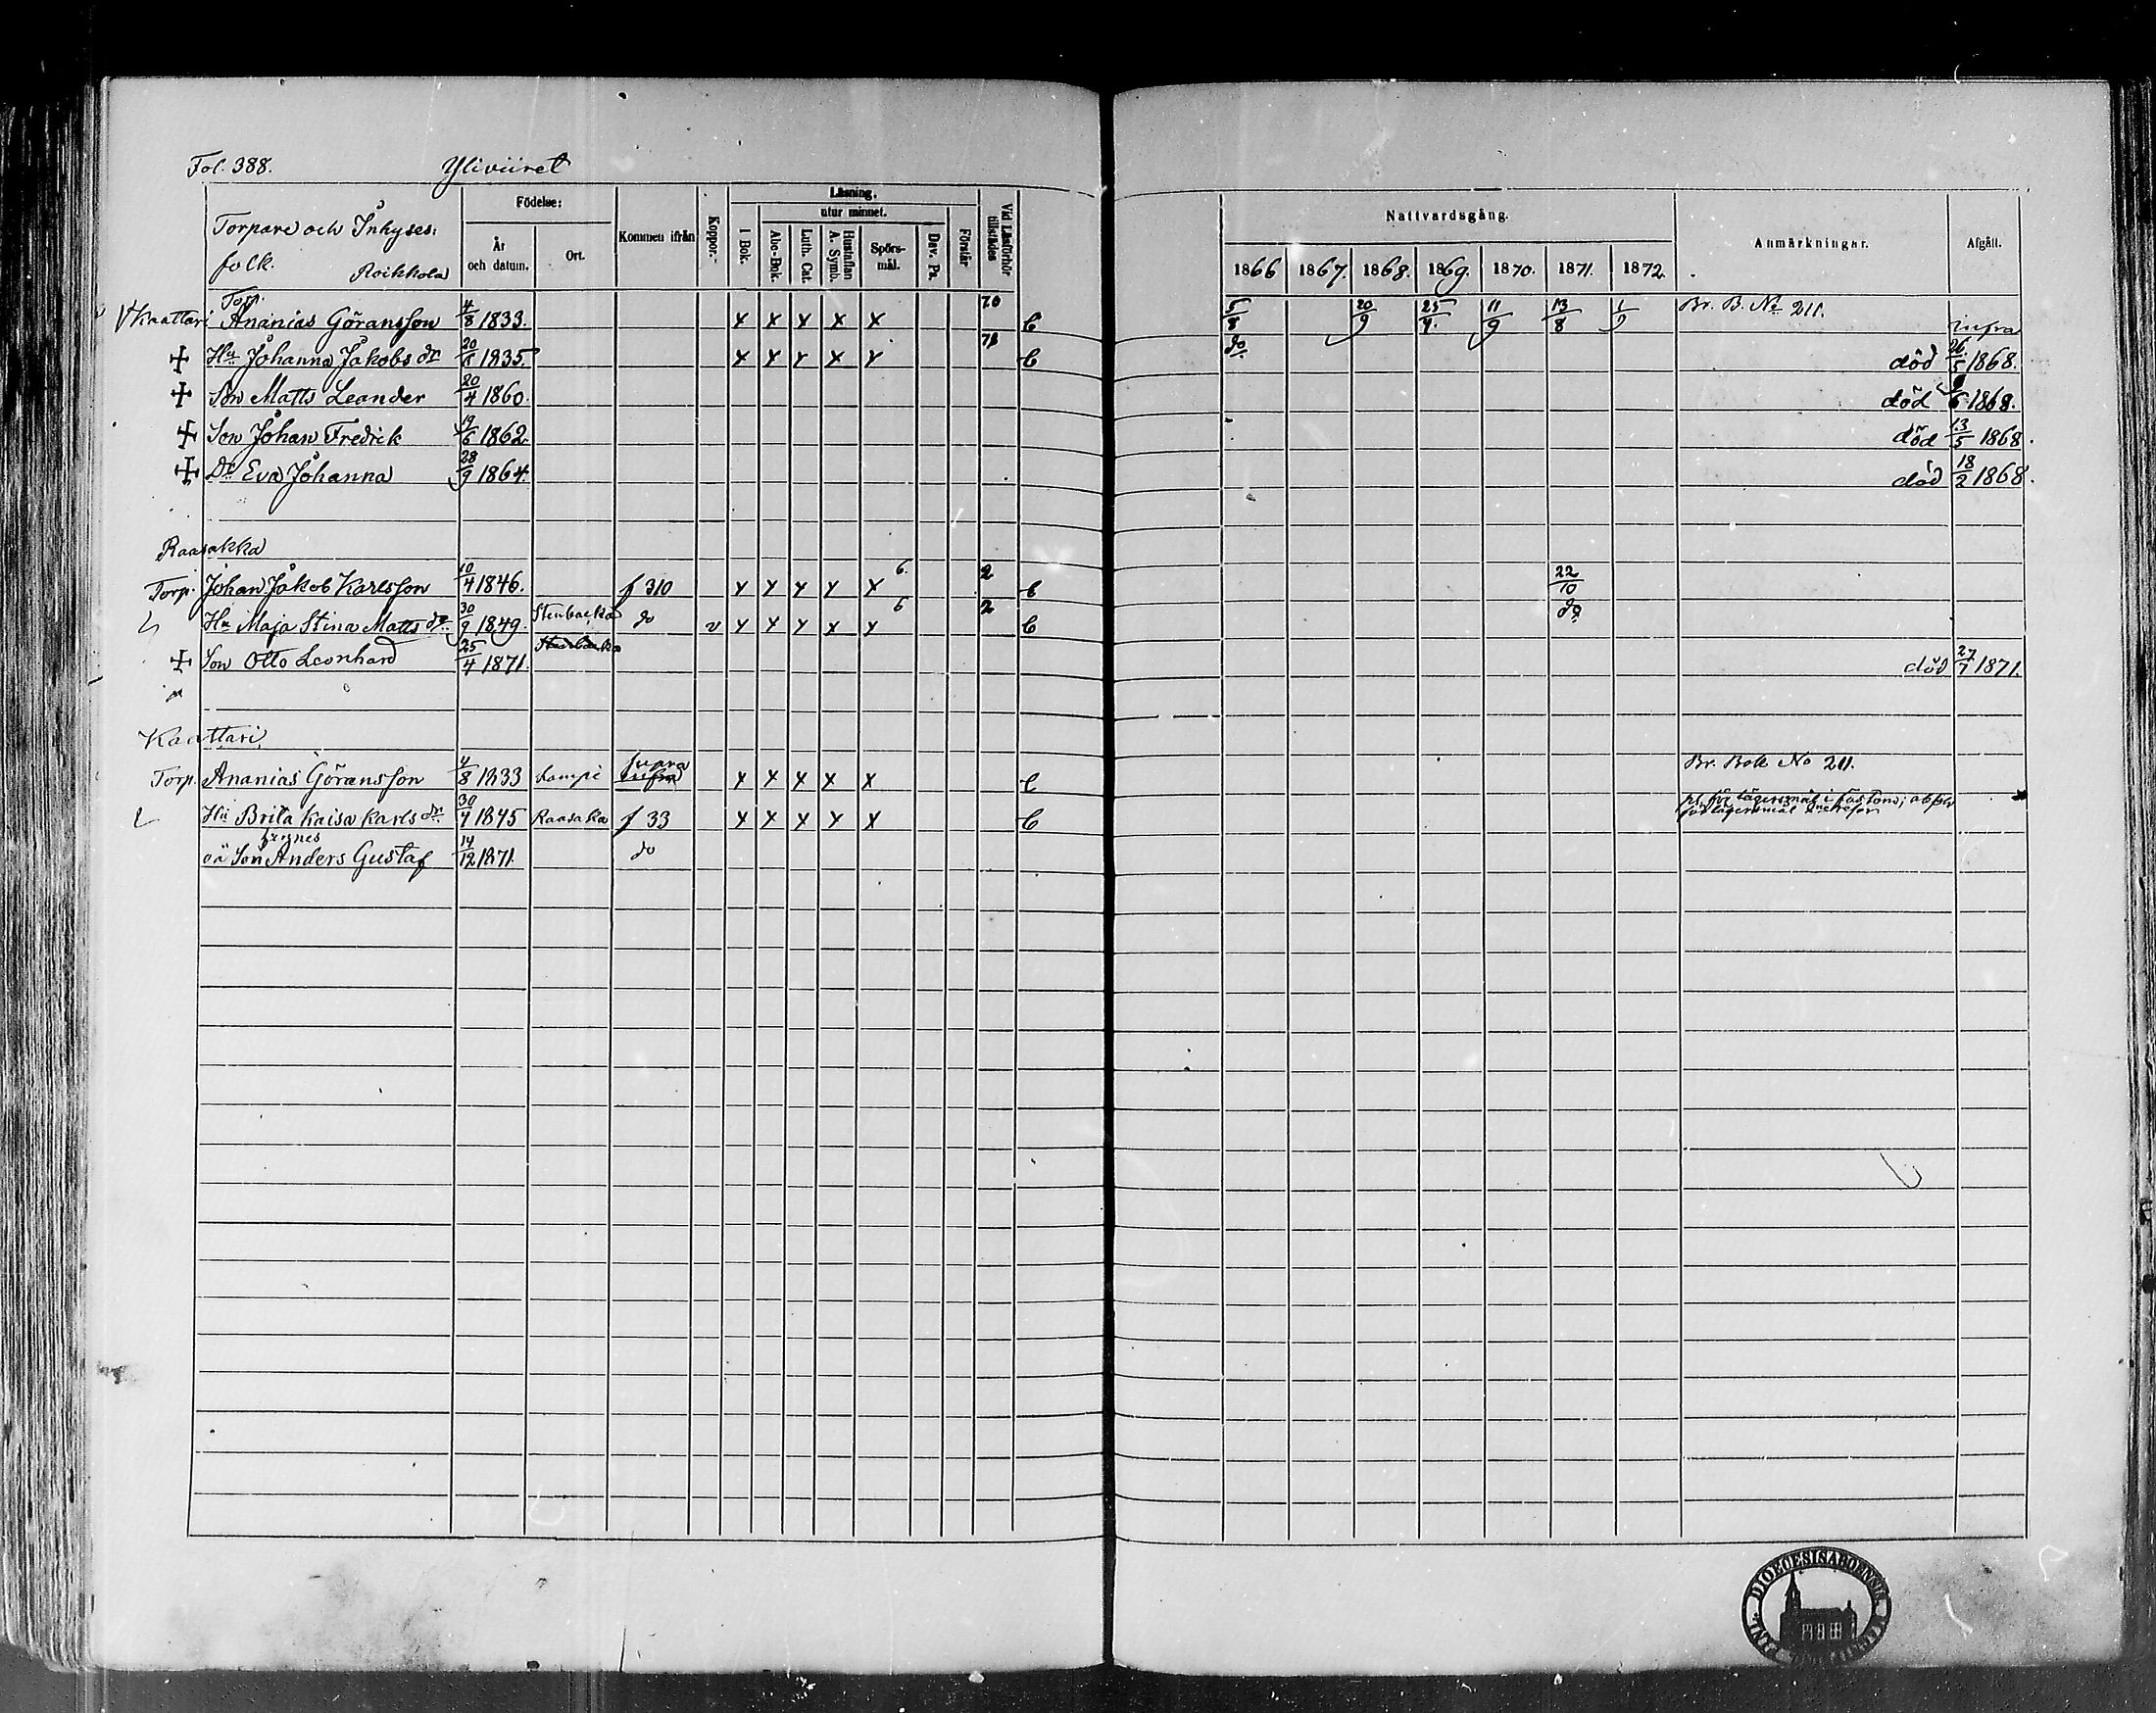 Fol. 388. Yliviiret
Torpare och Inhyses:
folk. Roikkola
Födelse:
År och datum.
Ort.
Kommen ifrån
Koppor.
Läsning.
utur minnet.
I Bok.
Abc-Bok.
Luth. Cat.
Hustaflan
A. Symb.
Spörs-
mål.
Dav. Ps.
Förstår
Vid Läsförhör
tillstädes
Nattvardsgång.
1866 1867. 1868. 1869. 1870. 1871. 1872.
Anmärkningar.
Afgått.
Torp.
Kaattari Ananias Göransson 4/8 1833. x x x x x 70 C 5/8 20/9 25/4. 11/9 13/8 1/9 Br. B. No 211. infra
Hu Johanna Jakobs dr 1835. x x x x x C do död 26/5 1868.
Son Matts Leander 20/4 1860. död 1868.
Son Johan Fredrik 19/6 1862 död 13/5 1868.
Dr Eva Johanna 28/9 1864. död 18/2 1868.
Raasakka
Torp. Johan Jakob Karlsson 10/4 1846. f 310 x x x x x 6. 2 C 22/10
Hu Maja Stina Matts dr 30/9 1849. Stenbacka do v x x x x x 6 2 C do
Son Otto Leonhard 25/4 1871. död 27/7 1871.
Kaattari
Torp. Ananias Göransson 4/8 1833 Lampi supra infra x x x x x C Br. Bok No 211.
Hu Brita Kaisa Karls dr 1845 Raasaka f 33 x x x x x C
hennes
oä Son Anders Gustaf 14/12 1871. do
DIOECESIS ABOENSIS